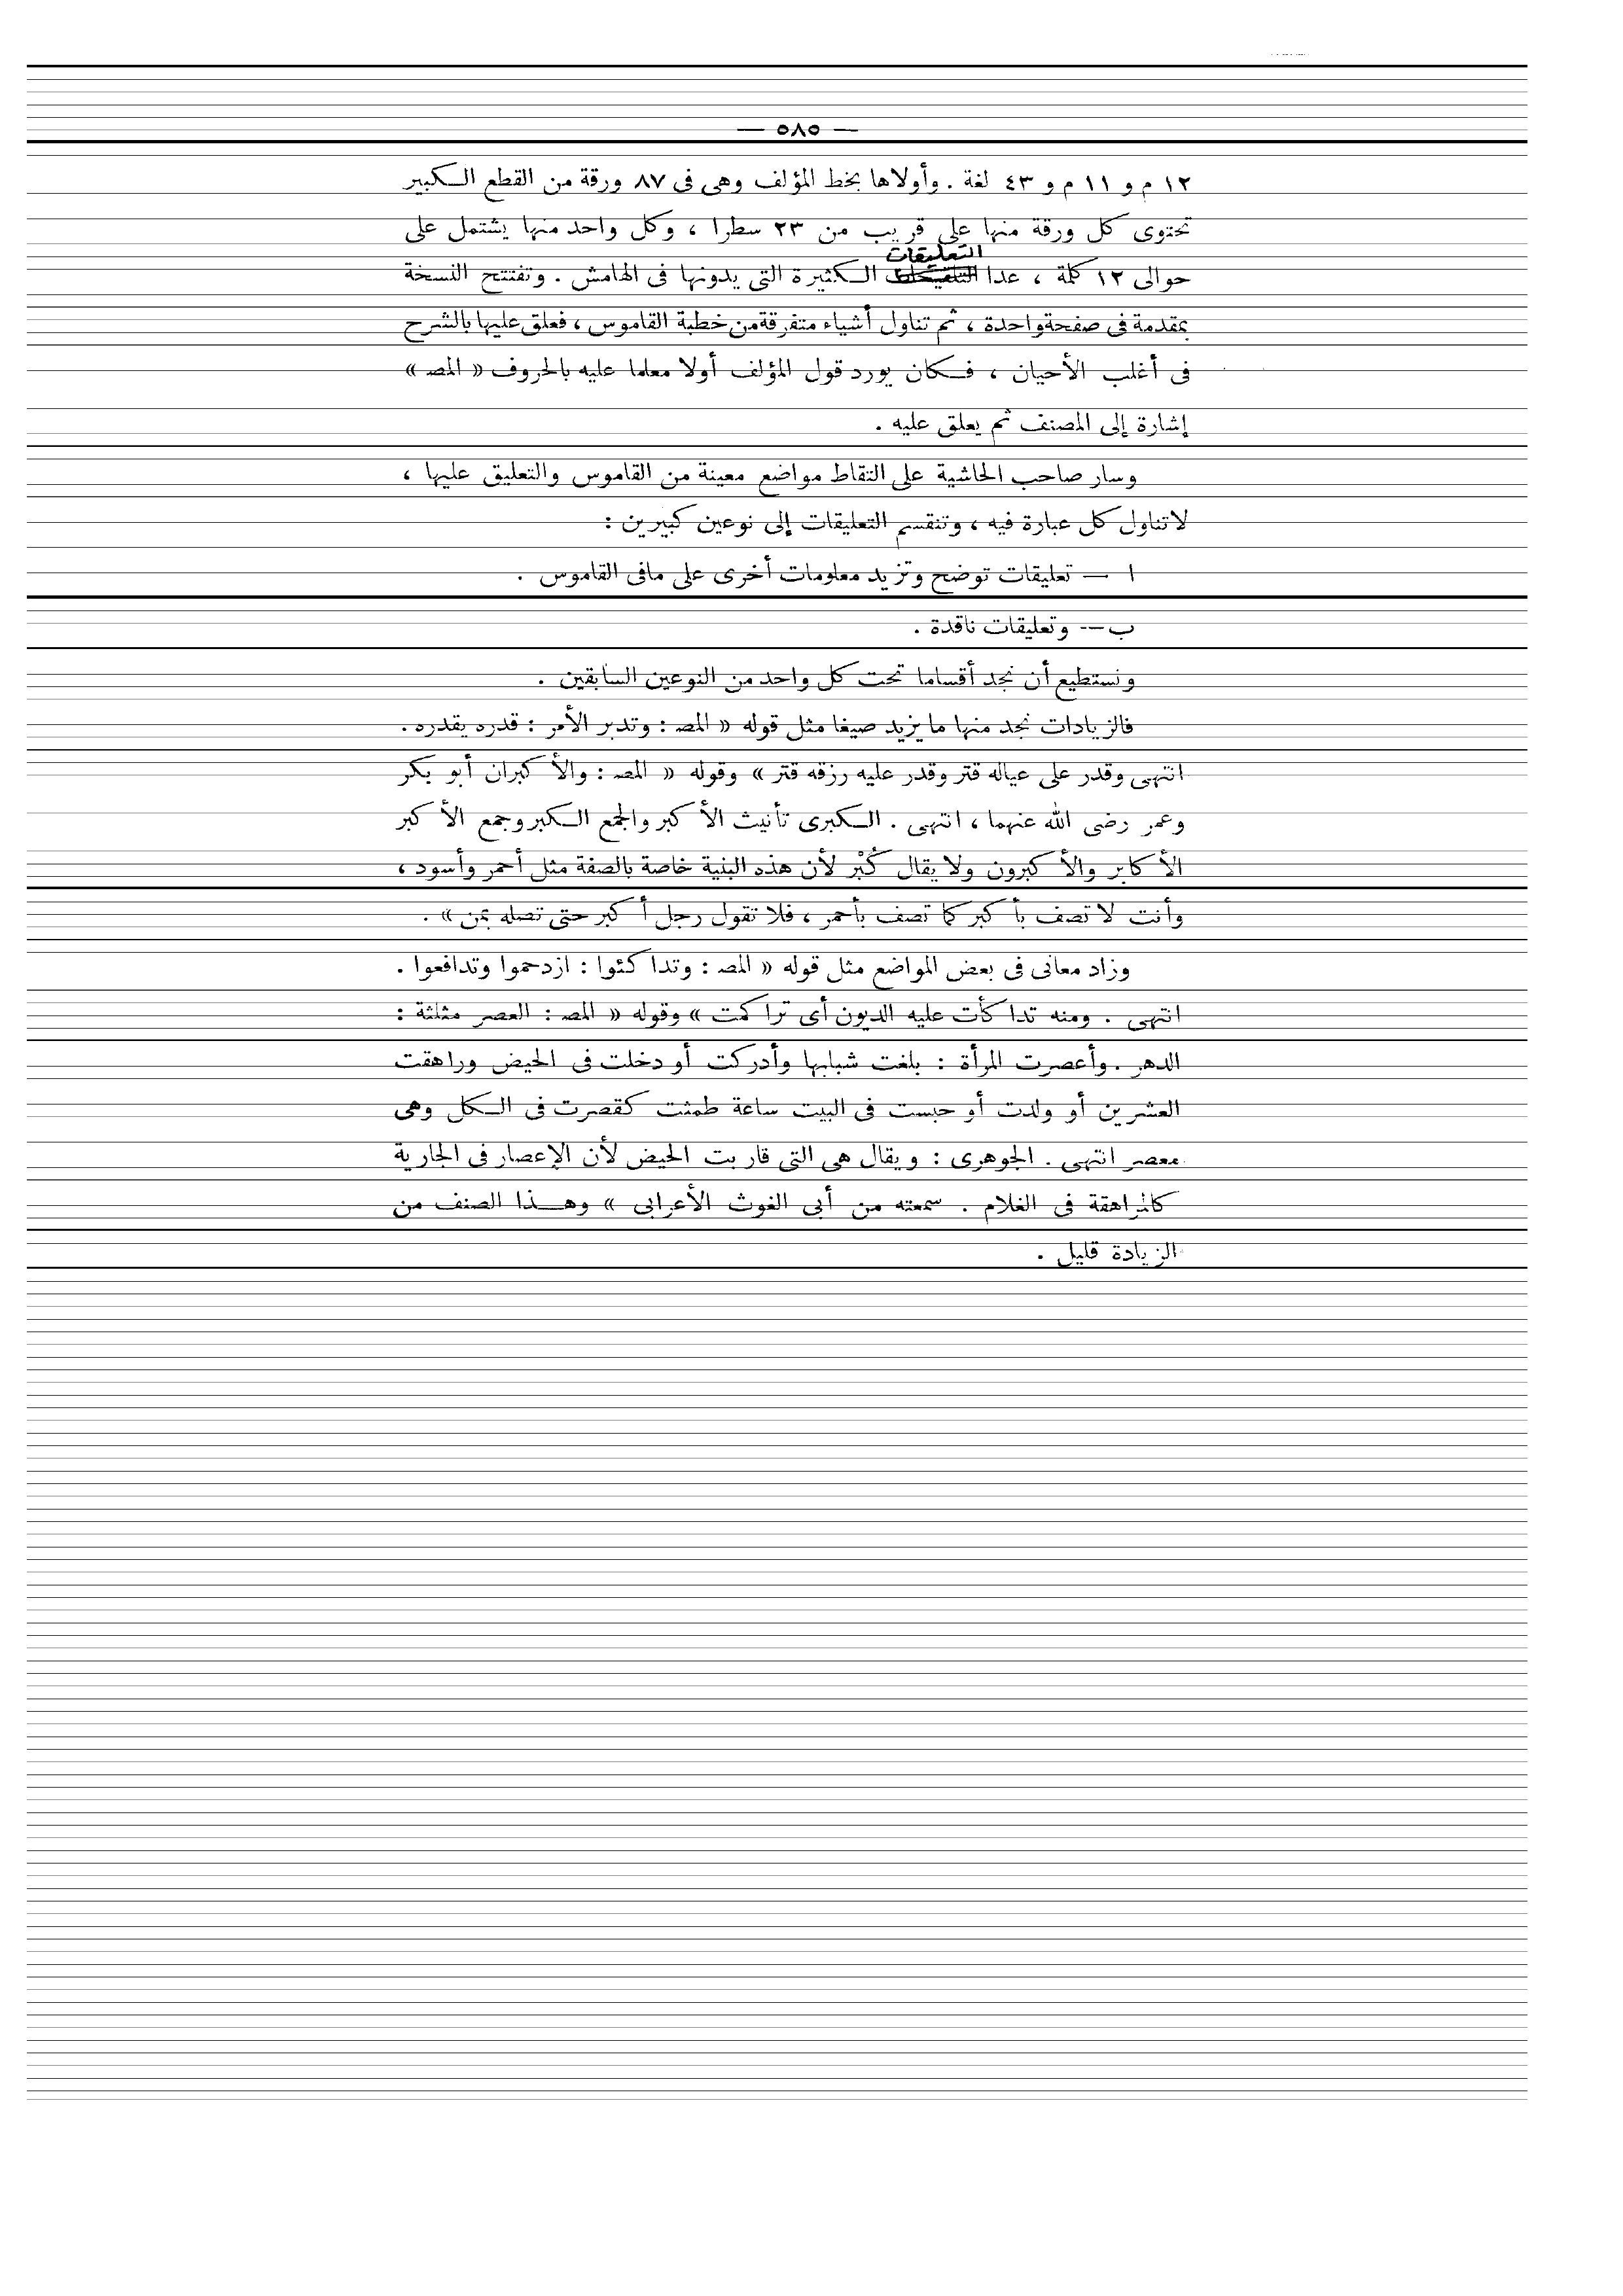 — ٥٨٥ —
١٢ م و ١١ م و ٤٣ لغة . وأولاها بخط المؤلف وهى فى ٨٧ ورقة من القطع الكبير
تحتوى كل ورقة منها على قريب من ٢٣ سطرا ، وكل واحد منها يشتمل على
التعليقات
حوالى ١٢ كلمة ، عدا الكثيرة التى يدونها فى الهامش . وتفتتح النسخة
بمقدمة فى صفحة واحدة ، ثم تناول أشياء متفرقة من خطبة القاموس ، فعلق عليها بالشرح
فى أغلب الأحيان ، فكان يورد قول المؤلف أولا معلما عليه بالحروف « المصـ »
إشارة إلى المصنف ثم يعلق عليه .
وسار صاحب الحاشية على التقاط مواضع معينة من القاموس والتعليق عليها ،
لا تناول كل عبارة فيه ، وتنقسم التعليقات إلى نوعين كبيرين :
ا — تعليقات توضح وتزيد معلومات أخرى على مافى القاموس .
ب — وتعليقات ناقدة .
ونستطيع أن نجد أقساما تحت كل واحد من النوعين السابقين .
فالزيادات نجد منها ما يزيد صيغا مثل قوله « المصـ : وتدبر الأمر : قدره يقدره .
انتهى وقدر على عياله قتر وقدر عليه رزقه قتر » وقوله « المصـ : والأكبران أبو بكر
وعمر رضى الله عنهما ، انتهى . الكبرى تأنيث الأكبر والجمع الكبر وجمع الأكبر
الأكابر والأكبرون ولا يقال كُبْر لأن هذه البنية خاصة بالصفة مثل أحمر وأسود ،
وأنت لا تصف بأكبر كما تصف بأحمر ، فلا تقول رجل أكبر حتى تصله بمن » .
وزاد معانى فى بعض المواضع مثل قوله « المصـ : وتداكئوا : ازدحموا وتدافعوا .
انتهى . ومنه تداكأت عليه الديون أى تراكمت » وقوله « المصـ : العصر مثلثة :
الدهر . وأعصرت المرأة : بلغت شبابها وأدركت أو دخلت فى الحيض وراهقت
العشرين أو ولدت أو حبست فى البيت ساعة طمثت كقصرت فى الكل وهى
معصر انتهى . الجوهرى : ويقال هى التى قاربت الحيض لأن الإعصار فى الجارية
كالمراهقة فى الغلام . سمعته من أبى الغوث الأعرابى » وهـذا الصنف من
الزيادة قليل .